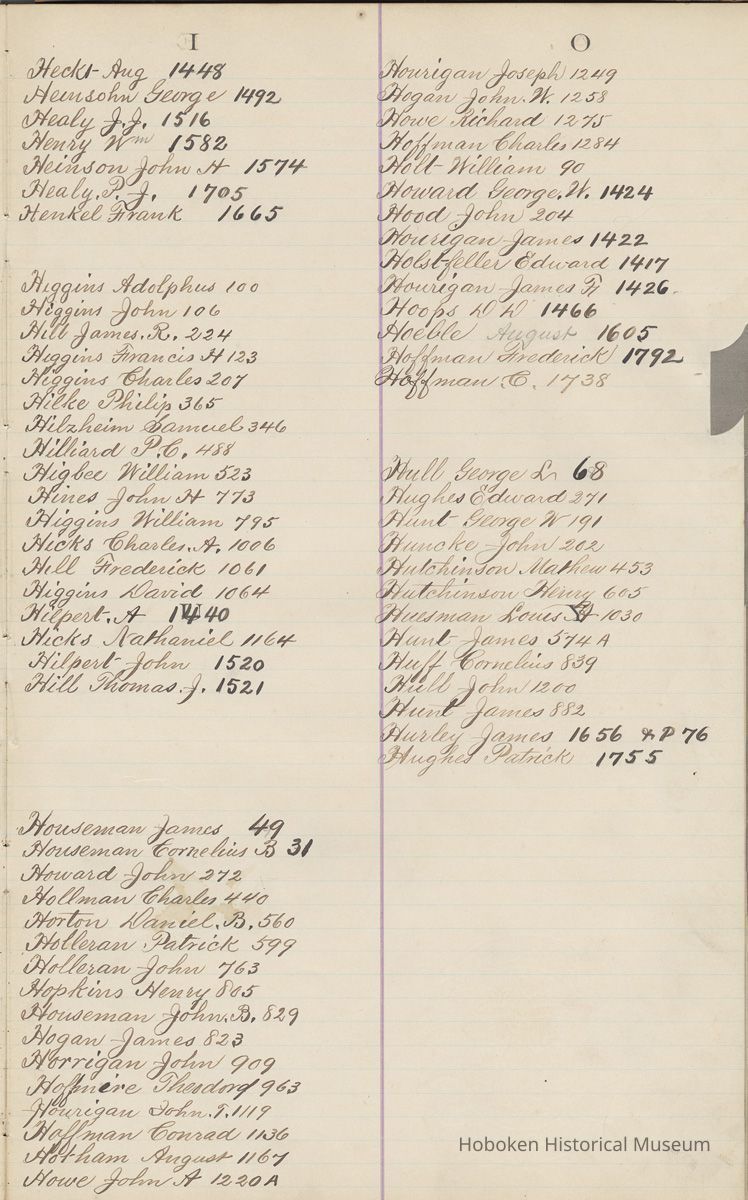 I
Heckt Aug 1448
Heinsohn George 1492
Healy J.J. 1516
Henry Wm 1582
Heinson John H 1574
Healy. P. J. 1705
Henkel Frank 1665
Higgins Adolphus 100
Higgins John 106
Hill James. R. 224
Higgins Francis H 123
Higgins Charles 207
Hilke Philip 365
Hilzheim Samuel 346
Hilliard P.C. 488
Higbee William 523
Hines John H 773
Higgins William 795
Hicks Charles. A. 1006
Hill Frederick 1061
Higgins David 1064
Hilpert. A 1440
Hicks Nathaniel 1164
Hilpert John 1520
Hill Thomas. J. 1521
Houseman James 49
Houseman Cornelius B 31
Howard John 272
Hollman Charles 440
Horton Daniel. B. 560
Holleran Patrick 599
Holleran John 763
Hopkins Henry 805
Houseman John. B. 829
Hogan James 823
Horrigan John 909
Hofmire 963
Hourigan John. T. 1119
Hoffman Conrad 1136
Hotham August 1167
Howe John A 1220A
O
Hourigan Joseph 1249
Hogan John. W. 1258
Howe Richard 1275
Hoffman Charles 1284
Holt William 90
Howard George. W. 1424
Hood John 204
Hourigan James 1422
Holstfeller Edward 1417
Hourigan James F 1426
Hoops D D 1466
Hoeble August 1605
Hoffman Frederick 1792
Hoffman. C. 1738
Hull George L 68
Hughes Edward 271
Hunt George W 191
Huncke John 202
Hutchinson Mathew 453
Hutchinson Henry 605
Huesman Louis 1030
Hunt James 574A
Huff Cornelius 839
Hull John 1200
Hunt James 882
Hurley James 1656 & P 76
Hughes Patrick 1755
Hoboken Historical Museum